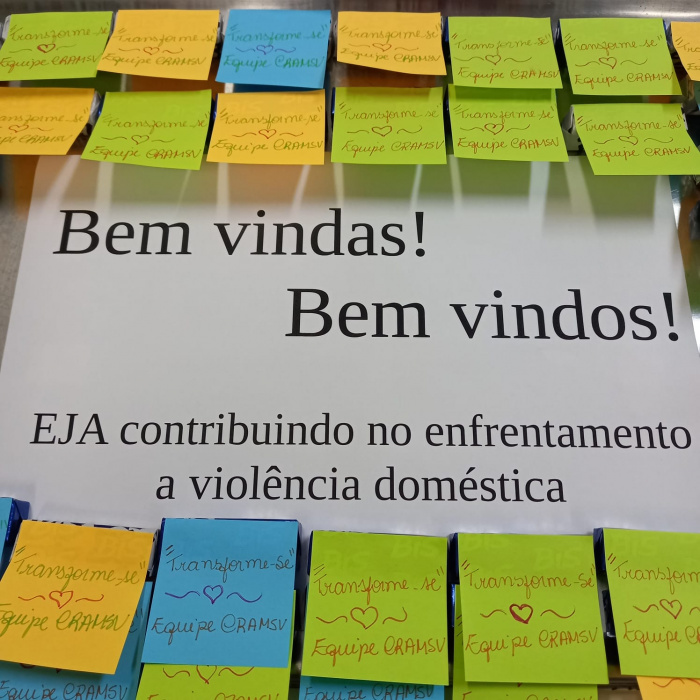 "Transforme-se" "Transforme-se" "Transforme-se" "Transforme-se" "Transforme-se" "Transforme-se"
Equipe CRAMSV Equipe CRAMSV Equipe CRAMSV Equipe CRAMSV Equipe CRAMSV Equipe CRAMSV
"Transforme-se" "Transforme-se" "Transforme-se" "Transforme-se" "Transforme-se" "Transforme-se"
Equipe CRAMSV Equipe CRAMSV Equipe CRAMSV Equipe CRAMSV Equipe CRAMSV Equipe CRAMSV
Bem vindas!
Bem vindos!
EJA contribuindo no enfrentamento
a violência doméstica
"Transforme-se" "Transforme-se" "Transforme-se" "Transforme-se" "Transforme-se"
Equipe CRAMSV Equipe CRAMSV Equipe CRAMSV Equipe CRAMSV Equipe
Equipe CRAMSV